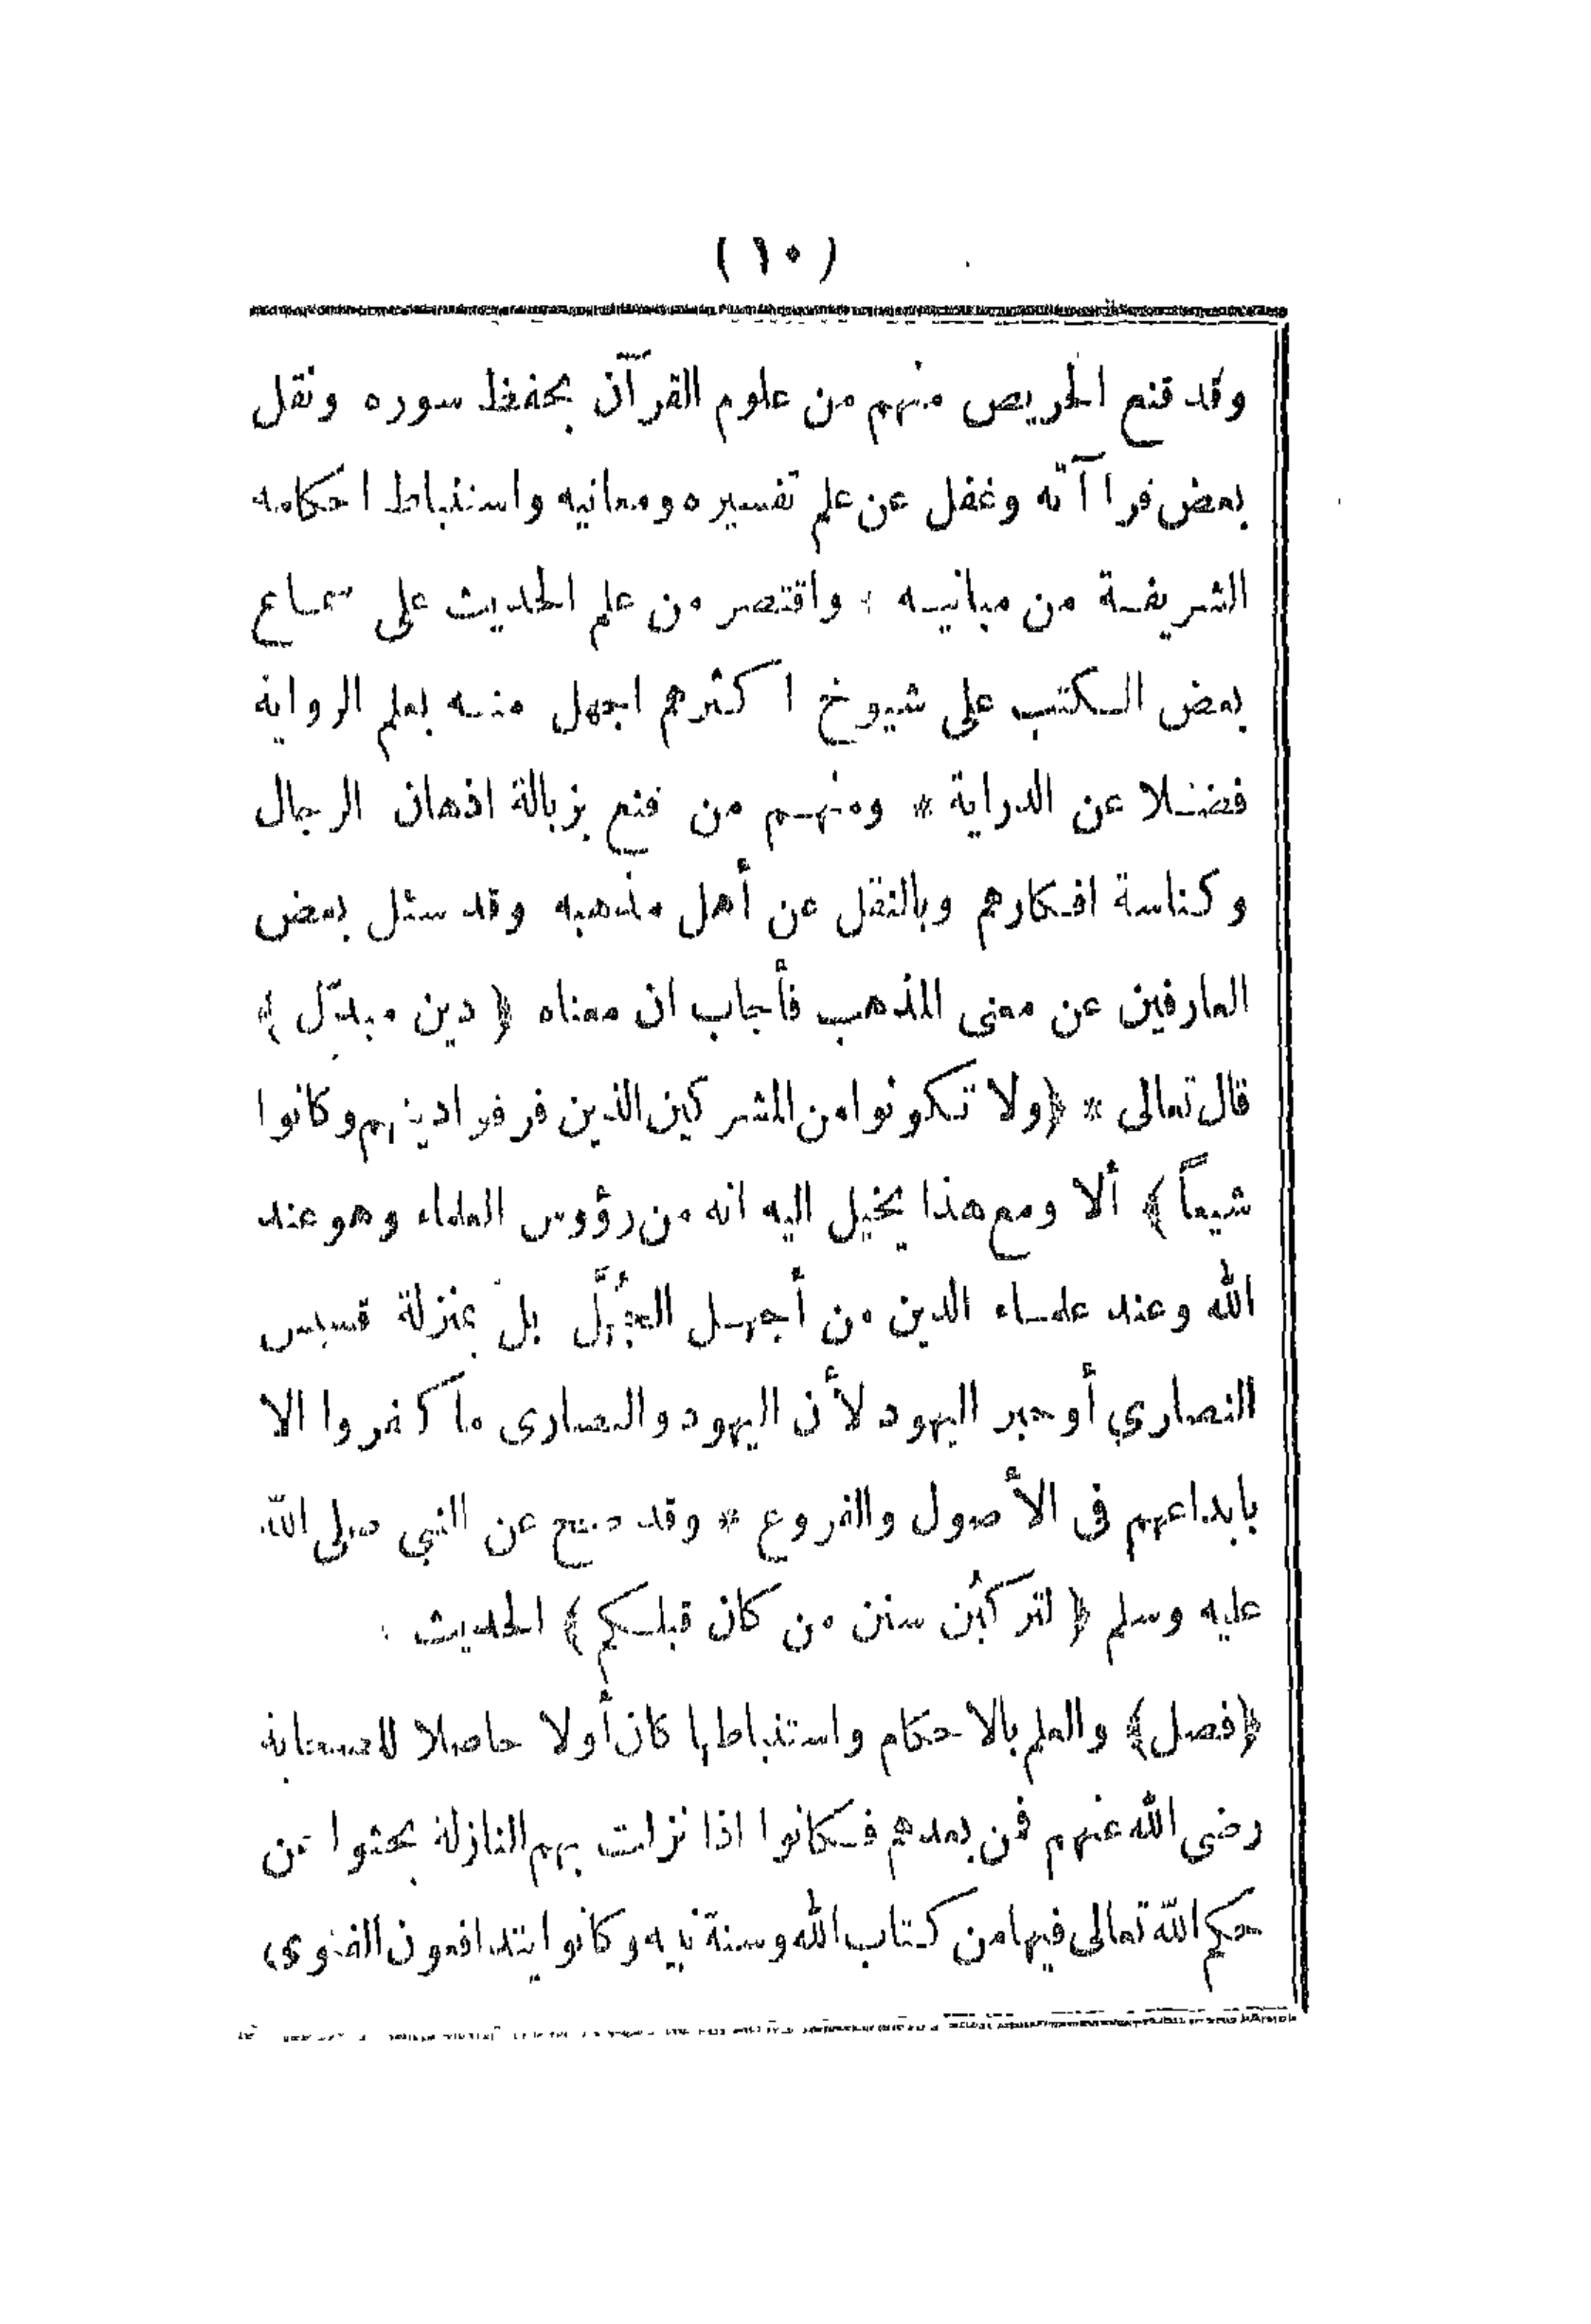 ( ١٠ )
وقد قنع الحريص منهم من علوم القرآن بحفظ سوره ونقل
بعض قراآته وغفل عن علم تفسيره ومعانيه واستنباط احكامه
الشريفة من مبانيه : واقتصر من علم الحديث على سماع
بعض الكتب على شيوخ اكثرهم اجهل منه بعلم الرواية
فضلا عن الدراية * ومنهم من قنع بزبالة اذهان الرجال
وكناسة افكارهم وبالنقل عن أهل مذهبه وقد سئل بعض
العارفين عن معنى المذهب فأجاب ان معناه ﴿ دين مبدّل ﴾
قال تعالى * ﴿ولا تكونوا من المشركين الذين فرقوا دينهم وكانوا
شيعاً﴾ ألا ومع هذا يخيل اليه انه من رؤوس العلماء وهو عند
الله وعند علماء الدين من أجهل الجُهَّل بل بمنزلة قسيس
النصاري أو حبر اليهود لأن اليهود والنصارى ما كفروا الا
بابداعهم فى الأصول والفروع * وقد صح عن النبي صلى الله
عليه وسلم ﴿ لتركبُن سنن من كان قبلكم﴾ الحديث :
﴿فصل﴾ والعلم بالاحكام واستنباطها كان أولا حاصلا للصحابة
رضى الله عنهم فمن بعدهم فكانوا اذا نزلت بهم النازلة بحثوا عن
حكم الله تعالى فيها من كتاب الله وسنة نبيه وكانوا يتدافعون الفتوى